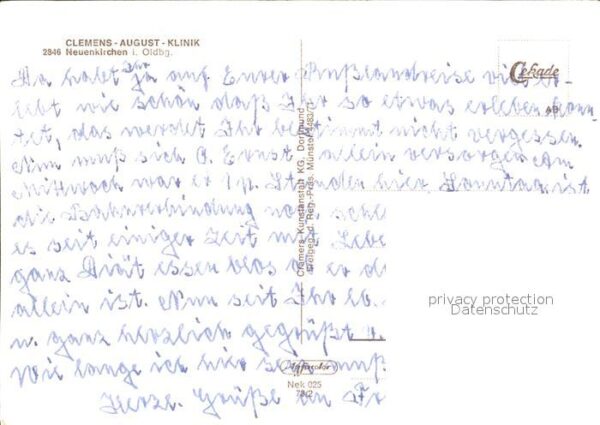 CLEMENS - AUGUST - KLINIK
2846 Neuenkirchen i. Oldbg.
Cekade
Da habt Ihr ja auf Eurer Rußlandreise viel er-
lebt wie schön daß Ihr so etwas erleben konn-
tet, das werdet Ihr bestimmt nicht vergessen.
Nun muß sich O. Ernst allein versorgen am
Mittwoch war er 1 ½ Stunden hier Sonntag ist
die Bahnverbindung
es seit einiger Zeit mit Lebe
ganz Diät essen blos er
allein ist. Nun seit Ihr lb.
u. ganz herzlich gegrüßt u.
Wie lange ich hier sein muß
Herzl. Grüße an Fr
Clemers Kunstanstalt KG, Dortmund
Freigeg. d. Reg.-Präs. Münster
Nek 025
privacy protection
Datenschutz